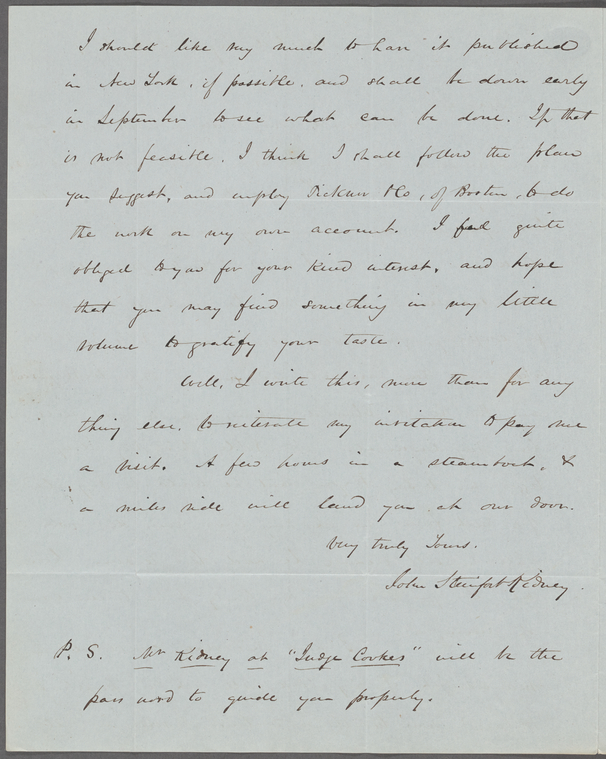 I should like very much to have it published
in New York, if possible, and shall be down early
in September to see what can be done. If that
is not feasible, I think I shall follow the plan
you suggest, and employ Ticknor & Co, of Boston, to do
the work on my own account. I feel quite
obliged to you for your kind interest, and hope
that you may find something in my little
volume to gratify your taste.
Well, I write this, more than for any
thing else, to reiterate my invitation to pay me
a visit. A few hours in a steamboat, &
a miles ride will land you at our door.
Very truly Yours.
John Steinfort Kidney.
P. S. Mr Kidney at "Judge Cookes" will be the
pass word to guide you properly.